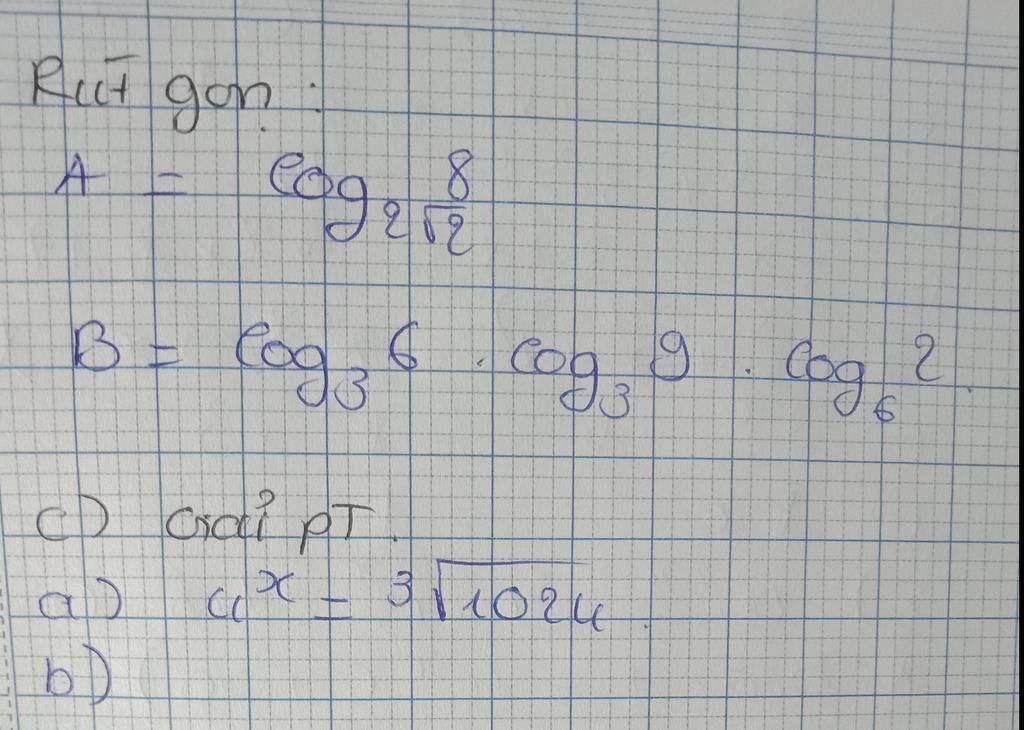 Rút gọn:
A = log₂ 8/√2
B = log₃ 6 . log₃ 9 . log₆ 2.
c) Giải PT.
a) 4ˣ = ³√1024.
b)